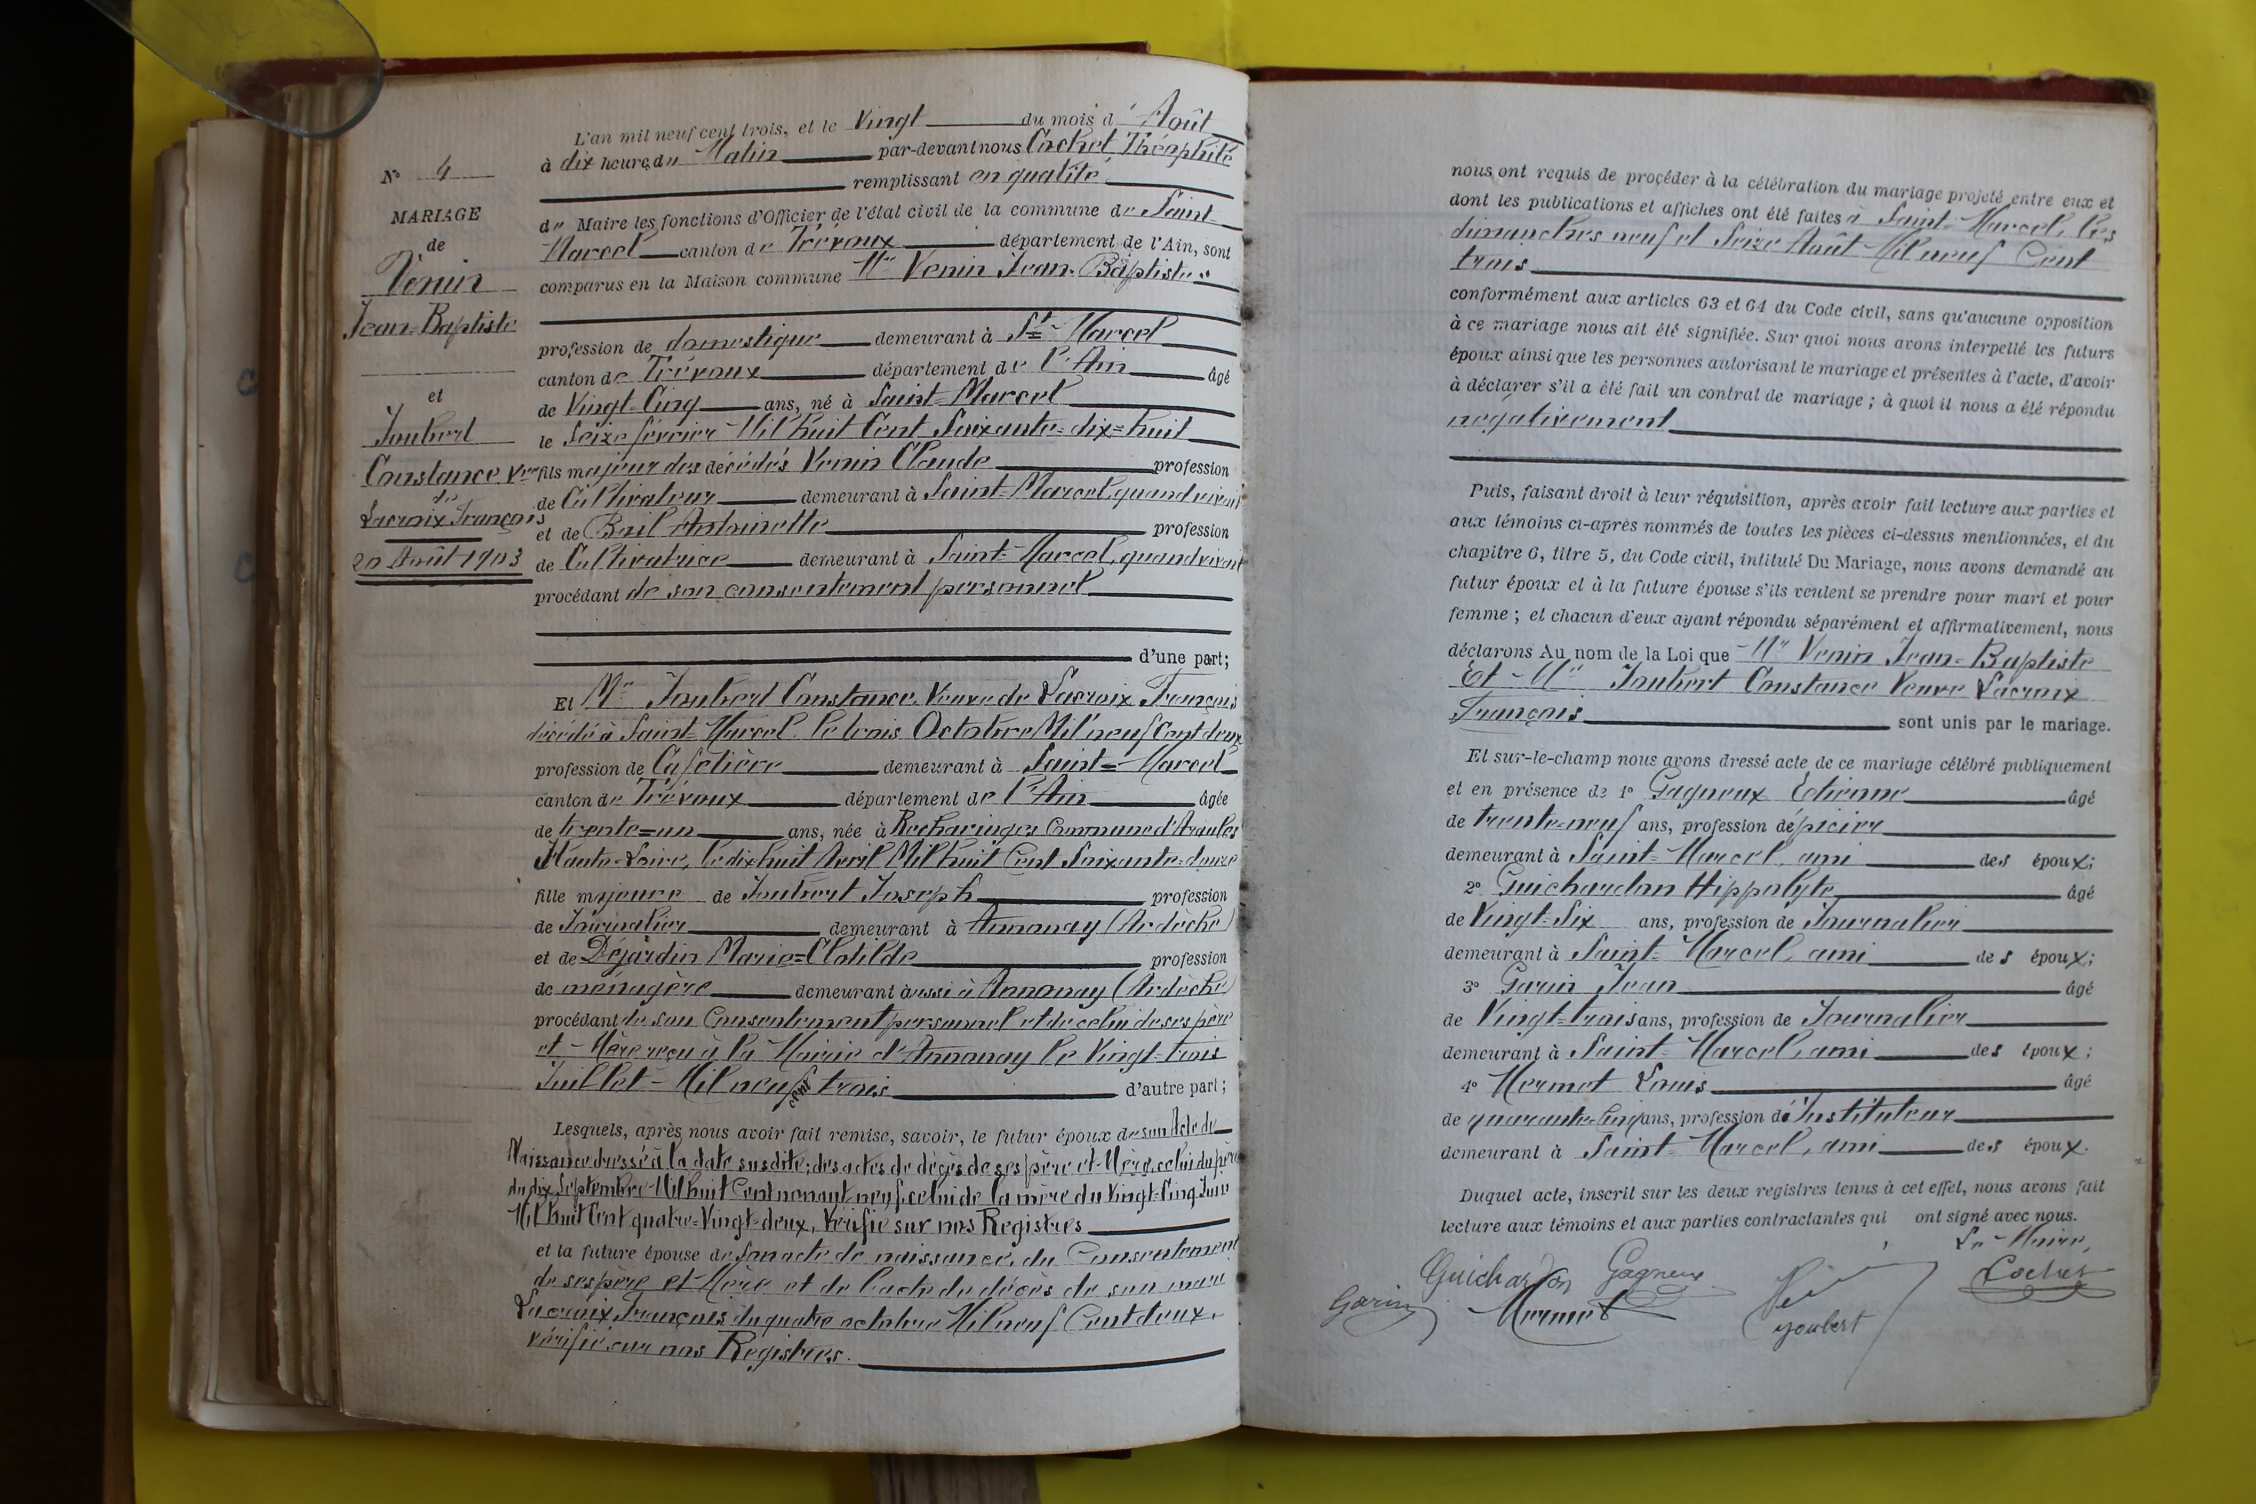 N° 4
MARIAGE
de
Venin
Jean-Baptiste
et
Joubert
Constance Vve
de
Lacroix François
20 Août 1903
L'an mil neuf cent trois, et le Vingt du mois d'Août
à dix heures du Matin par-devant nous Cochet Théophile
remplissant en qualité
de Maire les fonctions d'Officier de l'état civil de la commune de Saint-
Marcel canton de Trévoux département de l'Ain, sont
comparus en la Maison commune Mr Venin Jean-Baptiste
profession de domestique demeurant à St-Marcel
canton de Trévoux département de l'Ain âgé
de Vingt-Cinq ans, né à Saint-Marcel
le Seize février Mil huit Cent Soixante-dix-huit
fils majeur des décédés Venin Claude profession
de Cultivateur demeurant à Saint-Marcel, quand vivait
et de Buil Antoinette profession
de Cultivatrice demeurant à Saint-Marcel, quand vivait
procédant de son consentement personnel
d'une part;
Et Me Joubert Constance, Veuve de Lacroix François
décédé à Saint-Marcel le trois Octobre Mil neuf Cent deux
profession de Cafetière demeurant à Saint-Marcel
canton de Trévoux département de l'Ain âgée
de trente-un ans, née à Recharinges Commune d'Araules
Haute-Loire, le dix huit Avril Mil huit Cent Soixante-douze
fille majeure de Joubert Joseph profession
de Journalier demeurant à Annonay (Ardèche)
et de Déjardin Marie-Clotilde profession
de ménagère demeurant aussi à Annonay (Ardèche)
procédant de son Consentement personnel et de celui de ses père
et Mère reçu à la Mairie d'Annonay le Vingt-trois
Juillet Mil neuf cent trois d'autre part;
Lesquels, après nous avoir fait remise, savoir, le futur époux de son Acte de
Naissance dressé à la date susdite; des actes de décès de ses père et Mère, celui du père
du dix Septembre Mil huit Cent nonant neuf, celui de la mère du Vingt-Cinq Juin
Mil huit Cent quatre-Vingt-deux, Vérifié sur nos Registres
et la future épouse de son acte de naissance, du Consentement
de ses père et Mère et de l'acte de décès de son mari
Lacroix, François du quatre octobre Mil neuf Cent deux,
vérifié sur nos Registres.
nous ont requis de procéder à la célébration du mariage projeté entre eux et
dont les publications et affiches ont été faites à Saint-Marcel, les
dimanches neuf et Seize Août Mil neuf Cent
trois
conformément aux articles 63 et 64 du Code civil, sans qu'aucune opposition
à ce mariage nous ait été signifiée. Sur quoi nous avons interpellé les futurs
époux ainsi que les personnes autorisant le mariage et présentes à l'acte, d'avoir
à déclarer s'il a été fait un contrat de mariage; à quoi il nous a été répondu
négativement
Puis, faisant droit à leur réquisition, après avoir fait lecture aux parties et
aux témoins ci-après nommés de toutes les pièces ci-dessus mentionnées, et du
chapitre 6, titre 5, du Code civil, intitulé Du Mariage, nous avons demandé au
futur époux et à la future épouse s'ils veulent se prendre pour mari et pour
femme; et chacun d'eux ayant répondu séparément et affirmativement, nous
déclarons Au nom de la Loi que Mr Venin Jean-Baptiste
Et Me Joubert Constance Veuve Lacroix
François sont unis par le mariage.
Et sur-le-champ nous avons dressé acte de ce mariage célébré publiquement
et en présence de 1° Gagneux Etienne âgé
de trente-neuf ans, profession d'épicier
demeurant à Saint-Marcel, ami des époux;
2° Guichardon Hippolyte âgé
de Vingt-Six ans, profession de Journalier
demeurant à Saint-Marcel, ami des époux;
3° Garin Jean âgé
de Vingt-trois ans, profession de Journalier
demeurant à Saint-Marcel, ami des époux;
4° Mermet Louis âgé
de quarante-Cinq ans, profession d'Instituteur
demeurant à Saint-Marcel, ami des époux.
Duquel acte, inscrit sur les deux registres tenus à cet effet, nous avons fait
lecture aux témoins et aux parties contractantes qui ont signé avec nous.
Le Maire,
Guichardon Gagneux Cochet
Garin Mermet Joubert